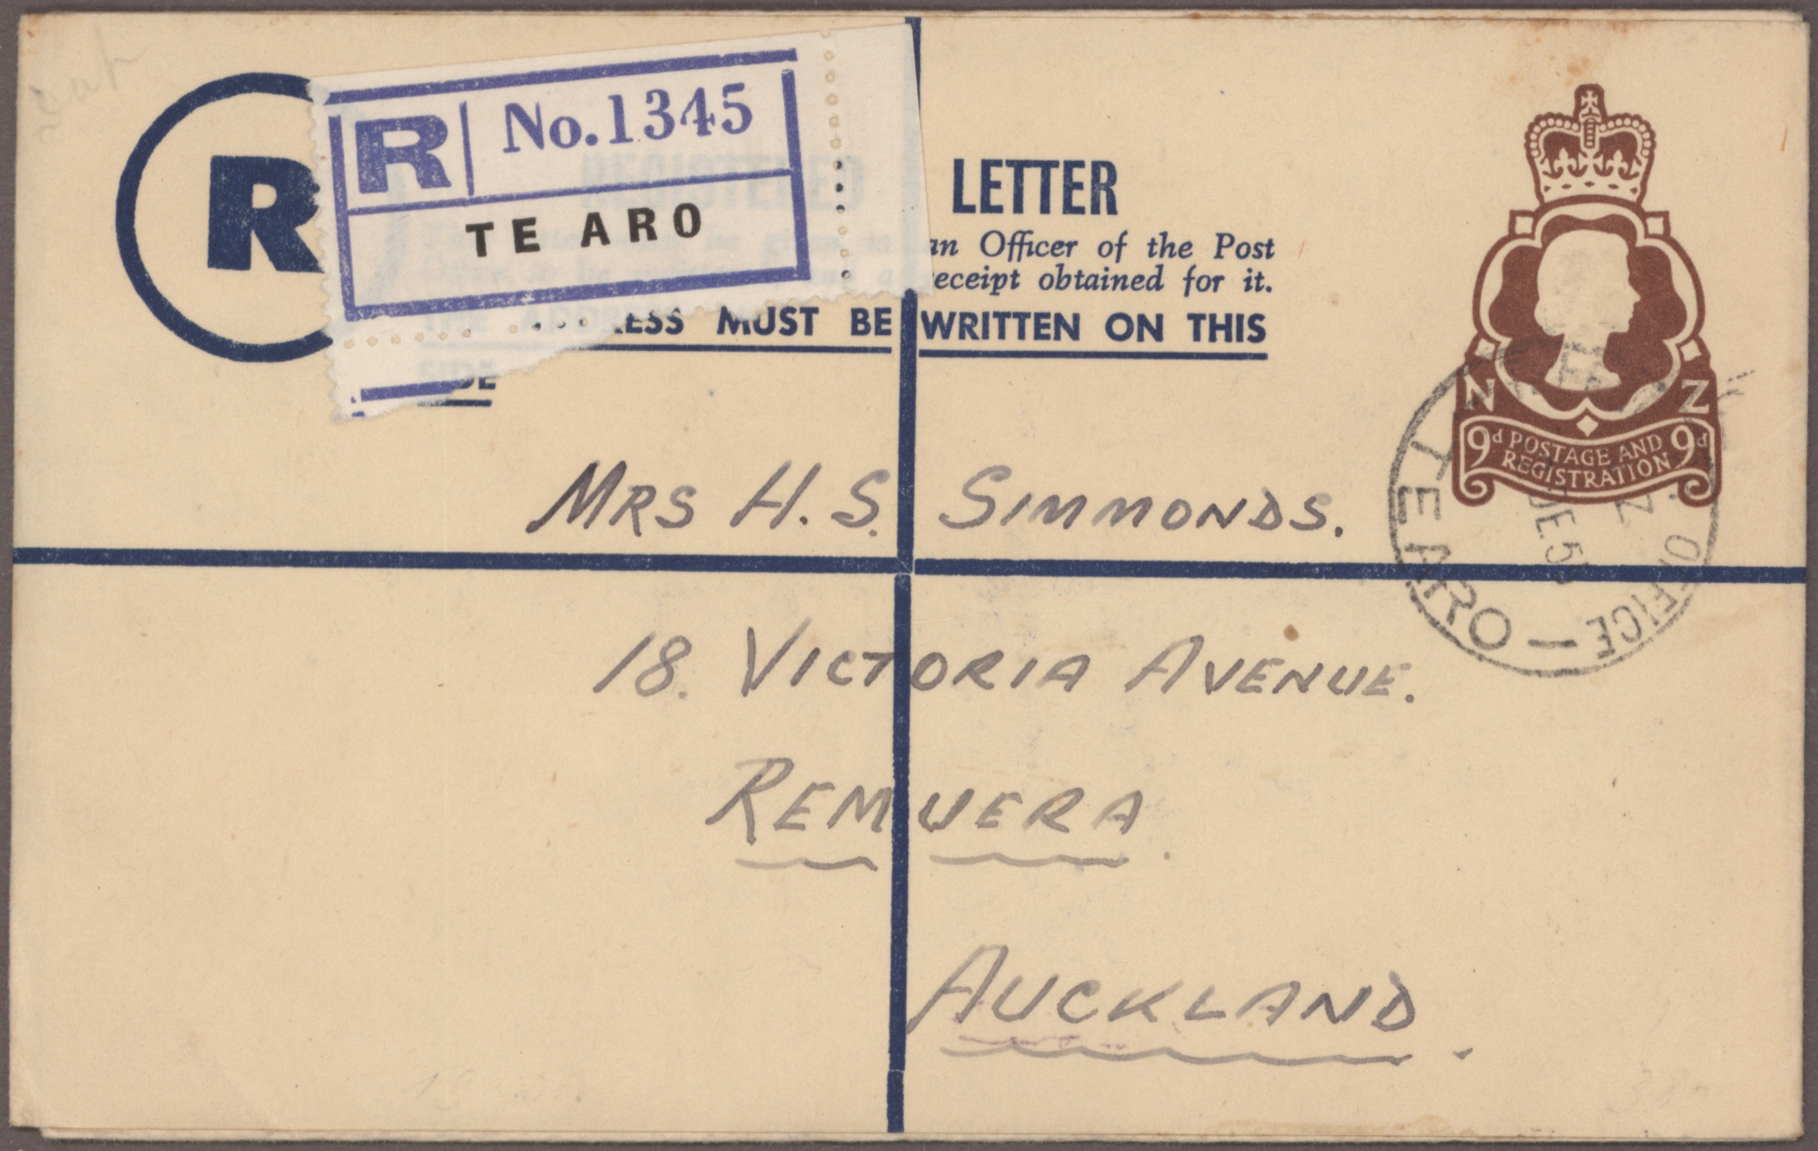 R
R No. 1345
TE ARO
REGISTERED LETTER
an Officer of the Post
receipt obtained for it.
THE ADDRESS MUST BE WRITTEN ON THIS
SIDE
N Z
9d POSTAGE AND 9d
REGISTRATION
TE ARO — OFFICE
DE 5
N Z
MRS H. S. SIMMONDS.
18. VICTORIA AVENUE.
REMUERA.
AUCKLAND.